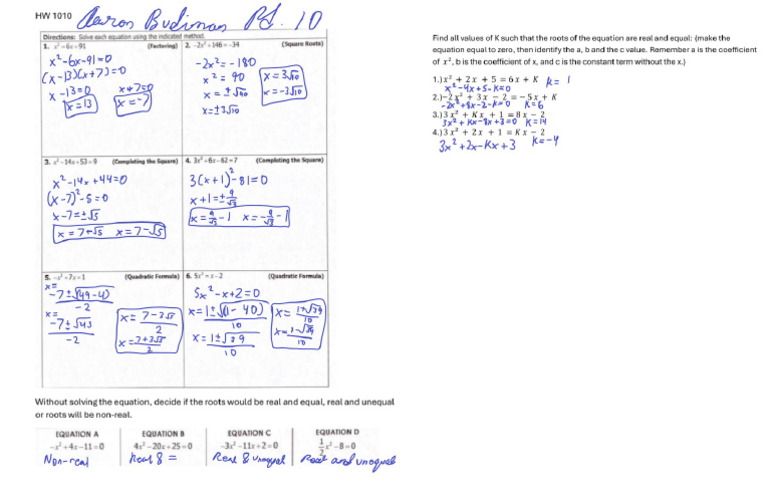 HW 1010
Aaron Budiman Pd. 10
Directions: Solve each equation using the indicated method.
1. x²-6x=91 (Factoring)
x²-6x-91=0
(x-13)(x+7)=0
x-13=0 x+7=0
x=13 x=-7
2. -2x²+146=-34 (Square Roots)
-2x²=-180
x²=90
x=±√90
x=±3√10
x=3√10
x=-3√10
3. x²-14x+53=9 (Completing the Square)
x²-14x+44=0
(x-7)²-5=0
x-7=±√5
x=7+√5 x=7-√5
4. 3x²+6x-62=7 (Completing the Square)
3(x+1)²-81=0
x+1=±9/√3
x=9/√3-1 x=-9/√3-1
5. -x²+7x=1 (Quadratic Formula)
x=
-7±√(49-4)
-2
x=
-7±√45
-2
x=7-3√5
2
x=7+3√5
2
6. 5x²=x-2 (Quadratic Formula)
5x²-x+2=0
x=1±√(1-40)
10
x=1±√39
10
x=1+√39
10
x=1-√39
10
Without solving the equation, decide if the roots would be real and equal, real and unequal
or roots will be non-real.
EQUATION A EQUATION B EQUATION C EQUATION D
-x²+4x-11=0 4x²-20x+25=0 -3x²-11x+2=0 1/2x²-8=0
Non-real Real & = Real & Unequal Real and unequal
Find all values of K such that the roots of the equation are real and equal: (make the
equation equal to zero, then identify the a, b and the c value. Remember a is the coefficient
of x², b is the coefficient of x, and c is the constant term without the x.)
1.) x² + 2x + 5 = 6x + K k= 1
x²-4x+5-K=0
2.) -2x² + 3x - 2 = -5x + K
-2x²+8x-2-K=0 K=6
3.) 3x² + Kx + 1 = 8x - 2
3x²+Kx-8x+3=0 K=14
4.) 3x² + 2x + 1 = Kx - 2
3x²+2x-Kx+3 K=-4